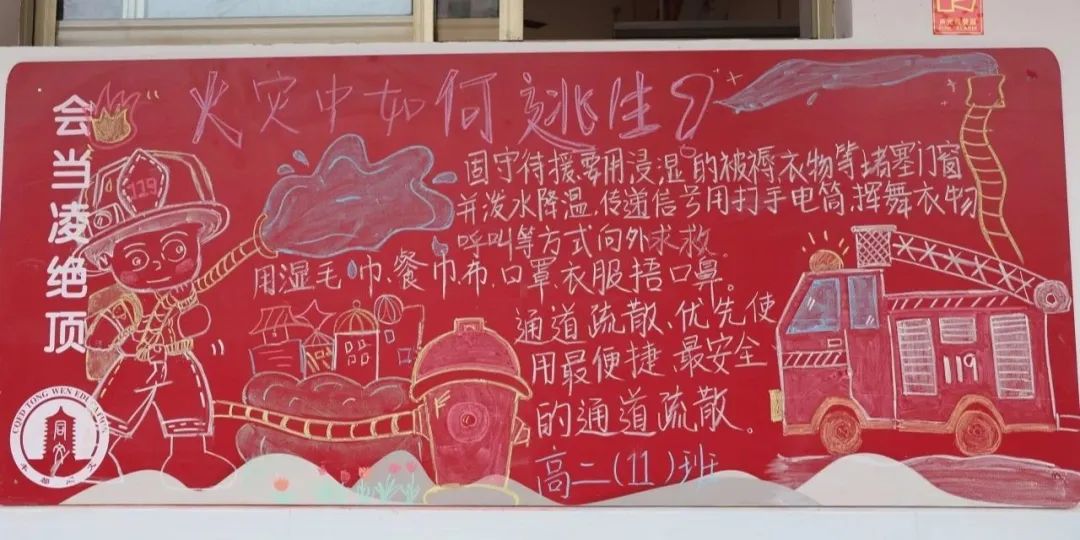 会当凌绝顶
火灾中如何逃生?
固守待援要用浸湿的被褥衣物等堵塞门窗
并泼水降温.传递信号用打手电筒.挥舞衣物
呼叫等方式向外求救。
用湿毛巾、餐巾、布、口罩、衣服捂口鼻。
通道疏散、优先使
用最便捷、最安全
的通道疏散。
高二(11)班
119
119